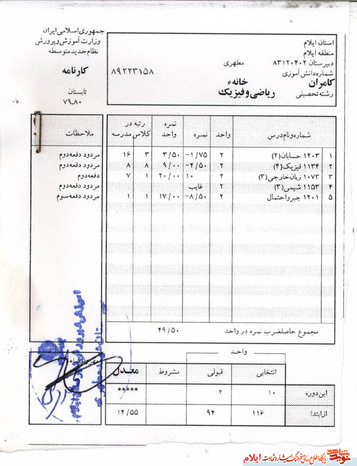 جمهوری اسلامی ایران
وزارت آموزش و پرورش
نظام جدید متوسطه
کارنامه
تابستان
۷۹ـ۸۰
استان ایلام
منطقه ایلام
دبیرستان ۸۳۱۲۰۴۰۲ مطهری
شماره دانش آموزی ۸۹۲۲۳۱۵۸
کامران خانهء
رشته تحصیلی ریاضی و فیزیک
شماره و نام درس واحد نمره نمره واحد رتبه در کلاس مدرسه ملاحظات
۱ ۱۲۰۳ حسابان (۲) ۲ ۱/۷۵- ۳/۵۰ ۳ ۱۶ مردود دفعه دوم
۲ ۱۱۳۴ فیزیک (۲) ۲ ۴/۵۰- ۹/۰۰ ۸ ۸ مردود دفعه دوم
۳ ۱۰۷۳ زبان خارجی (۳) ۲ ۱۰ ۲۰/۰۰ ۱ ۷ دفعه دوم
۴ ۱۱۵۳ شیمی (۳) ۲ غایب مردود دفعه دوم
۵ ۱۲۰۱ جبر و احتمال ۲ ۸/۵۰- ۱۷/۰۰ ۱ ۱ مردود دفعه سوم
مجموع حاصلضرب نمره در واحد ۴۹/۵۰
واحد
انتخابی قبولی مشروط معدل
این دوره ۱۰ ۲ *****
از ابتدا ۱۱۶ ۹۴ ۱۲/۵۵
ایلام